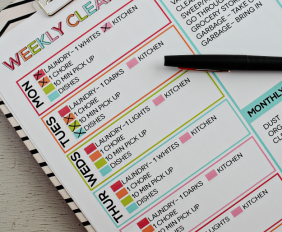 WEEKLY CLEA
MON
LAUNDRY - 1 WHITES KITCHEN
1 CHORE
10 MIN PICK UP
DISHES
TUES
LAUNDRY - 1 DARKS KITCHEN
1 CHORE
10 MIN PICK UP
DISHES
WEDS
LAUNDRY - 1 LIGHTS KITCHEN
1 CHORE
10 MIN PICK UP
DISHES
THUR
LAUNDRY - 1 WHITES KITCHEN
1 CHORE
10 MIN PICK UP
DISHES
LAUNDRY - 1 DARKS KITCHEN
1 CHORE
10 MIN PICK UP
DISHES
SWEEP/
GO THROUGH
GROCERY STOR
GARBAGE - TAKE
GARBAGE - BRING IN
MONTHLY
DUST